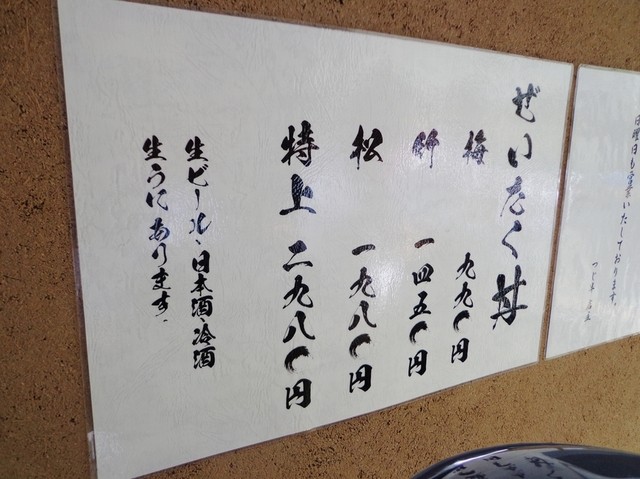 ぜいたく丼
梅 九九〇円
竹 一四五〇円
松 一九八〇円
特上 二九八〇円
生ビール、日本酒、冷酒
生うにあります。
日曜日も営業いたしております。